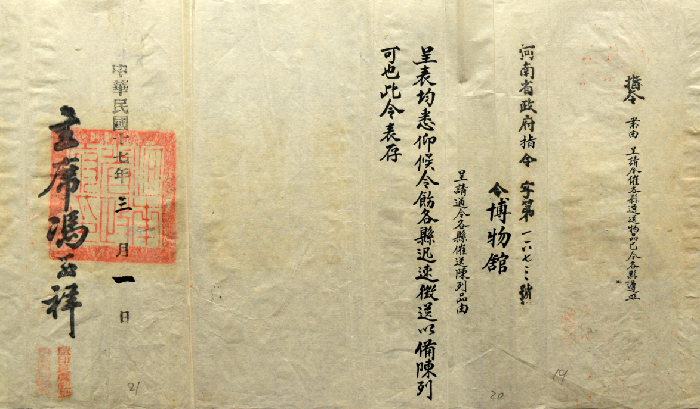 指令 案由 呈請令催各縣逕送物品已令各縣遵照
河南省政府指令 字第一六七三號
令博物館
呈請通令各縣催送陳列品由
呈表均悉仰候令飭各縣迅速徵送以備陳列
可也此令表存
中華民國十七年三月一日
主席馮玉祥
19
20
21